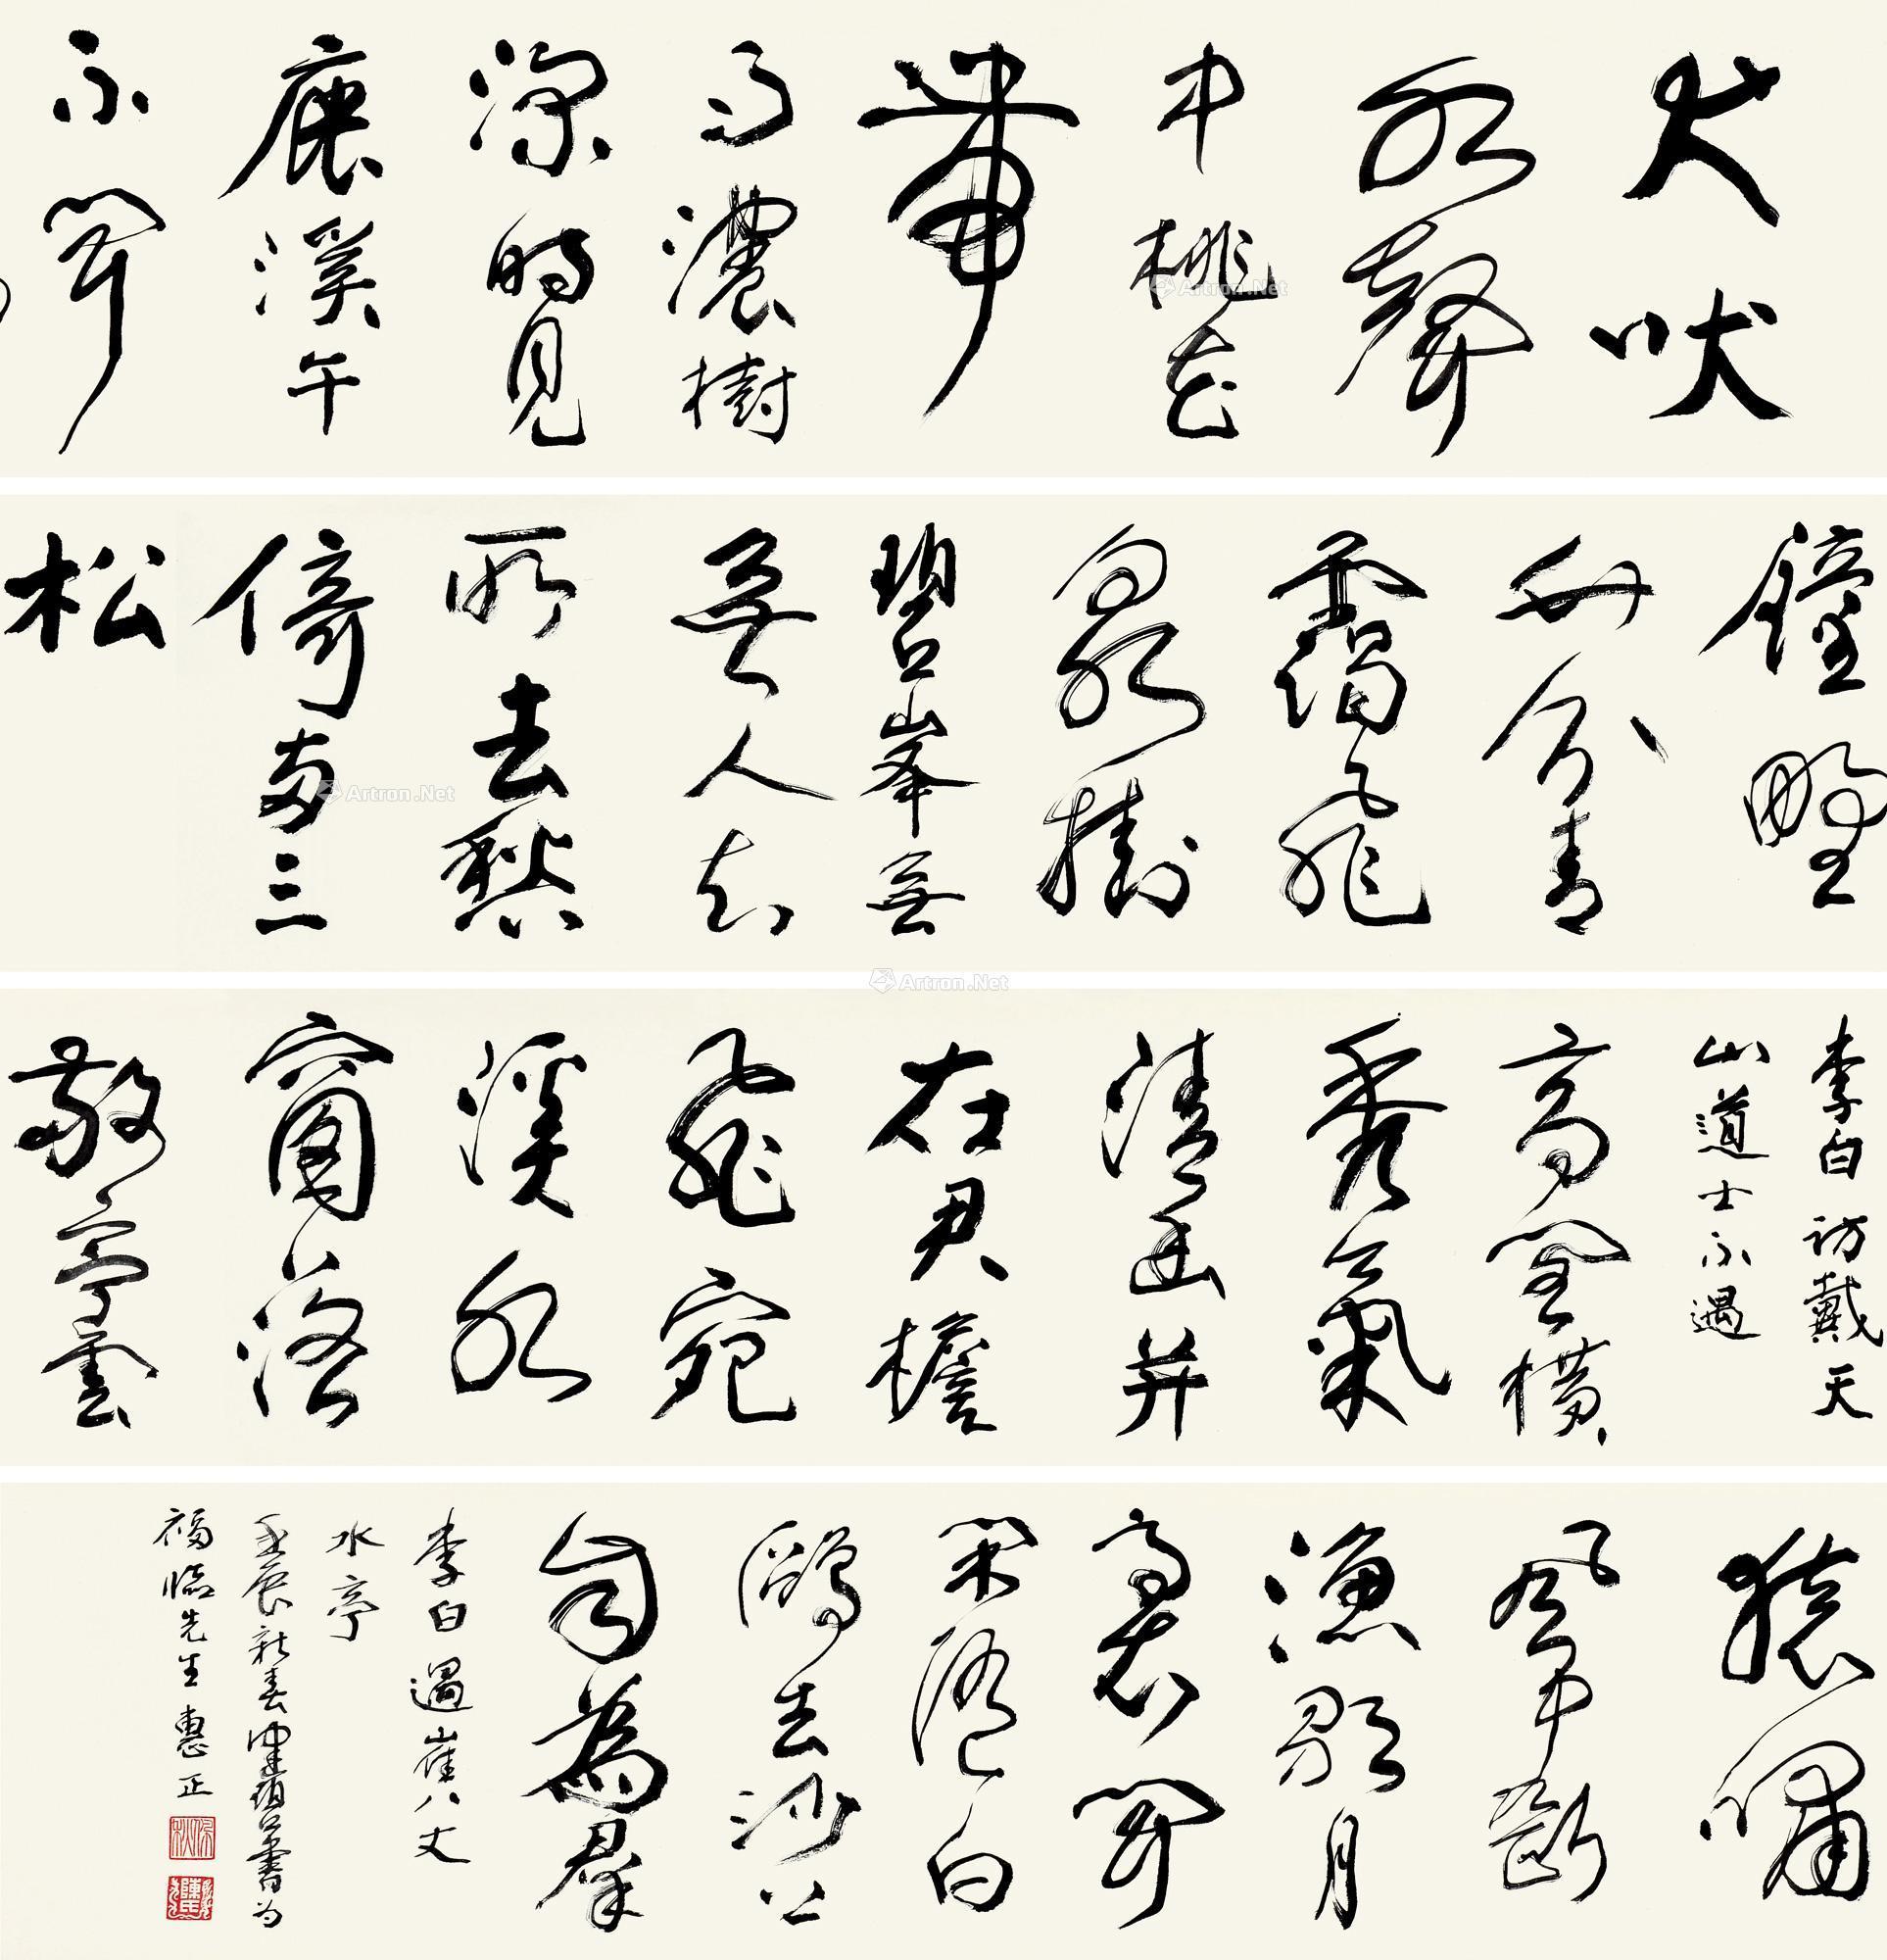 犬吠
水聲
中桃花
帶
雨濃樹
深時見
鹿溪午
不聞
鐘野
竹分青
靄飛
泉掛
碧峯無
無人知
所去愁
倚兩三
松
李白訪戴天
山道士不遇
高閣橫
秀氣
清幽并
在君檐
飛宛
溪水
窗落
敬亭雲
猿嘯
風中斷
漁歌月
裏聞
閑隨白
鷗去沙上
自為羣
李白過崔八丈
水亭
壬辰新春陳碧書為
福臨先生惠正
Artron.Net
Artron.Net
Artron.Net